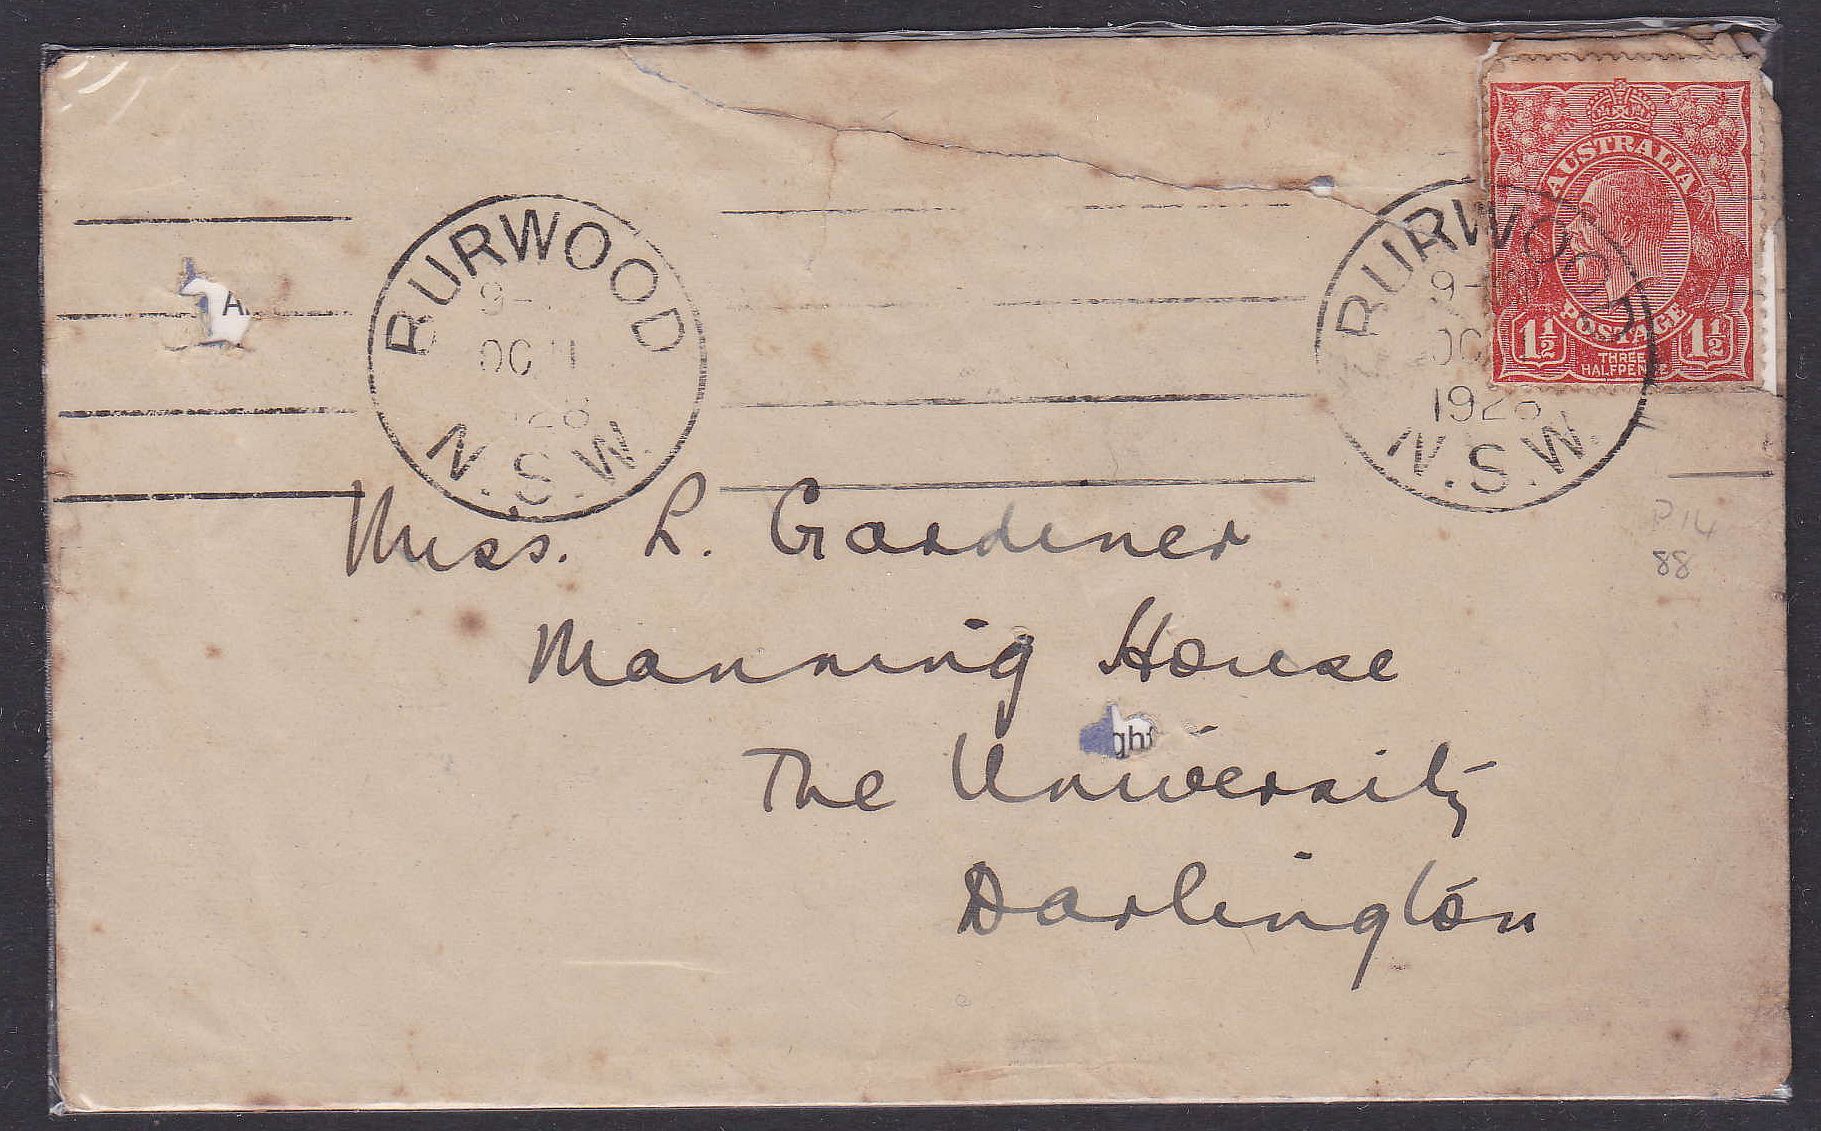 BURWOOD
9-
OC 11
1928
N.S.W.
BURWOOD
9-
OC
1928
N.S.W.
AUSTRALIA
POSTAGE
1½ THREE HALFPENCE 1½
A
Miss. L. Gardiner
P14
88
Manning House
ght
The University
Darlington